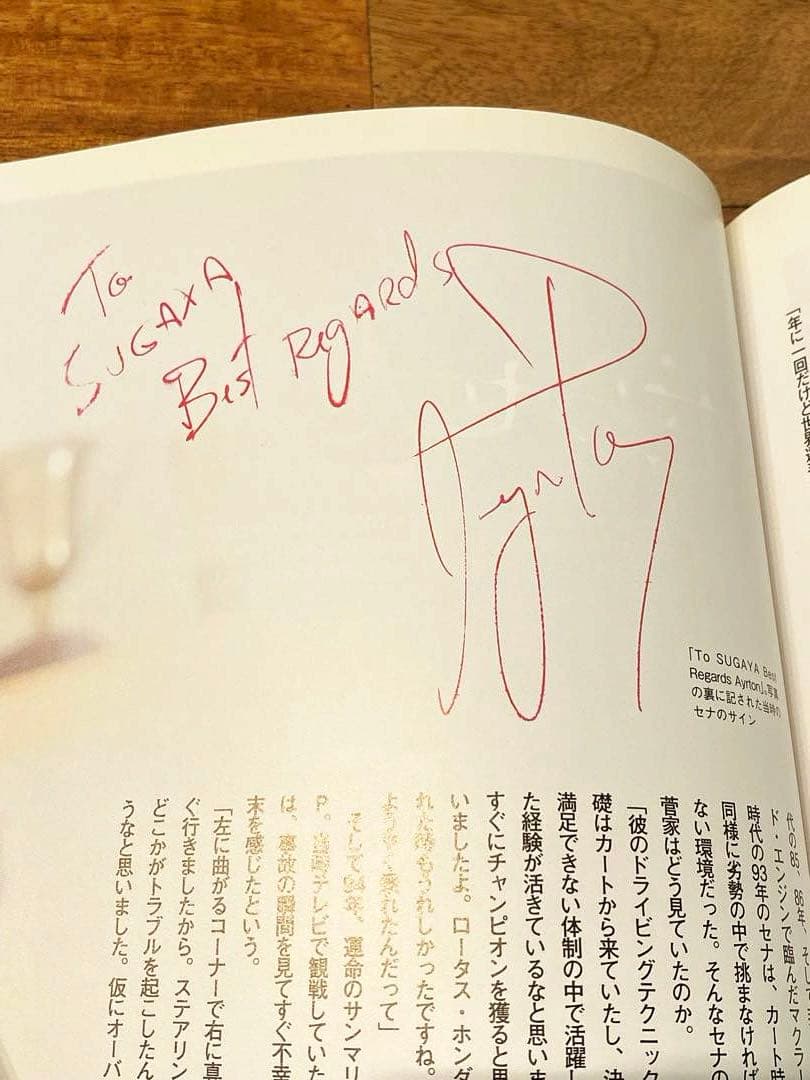 To
SUGAYA
Best Regards
Ayrton
「To SUGAYA Best
Regards Ayrton」。写真
の裏に記された当時の
セナのサイン
「年に一回だけど世界
代の85、86年、そし
ド・エンジンで臨んだマクラー
時代の93年のセナは、カート時
同様に劣勢の中で挑まなければ
ない環境だった。そんなセナの
菅家はどう見ていたのか。
「彼のドライビングテクニック
礎はカートから来ていたし、決
満足できない体制の中で活躍し
た経験が活きているなと思いま
すぐにチャンピオンを獲ると思
いましたよ。ロータス・ホンダ
れた時もうれしかったですね。
ようやく乗れたんだって」
そして94年、運命のサンマリ
P。テレビで観戦していた
は、事故の瞬間を見てすぐ不幸
末を感じたという。
「左に曲がるコーナーで右に真
ぐ行きましたから。ステアリン
どこかがトラブルを起こしたん
うなと思いました。仮にオーバ